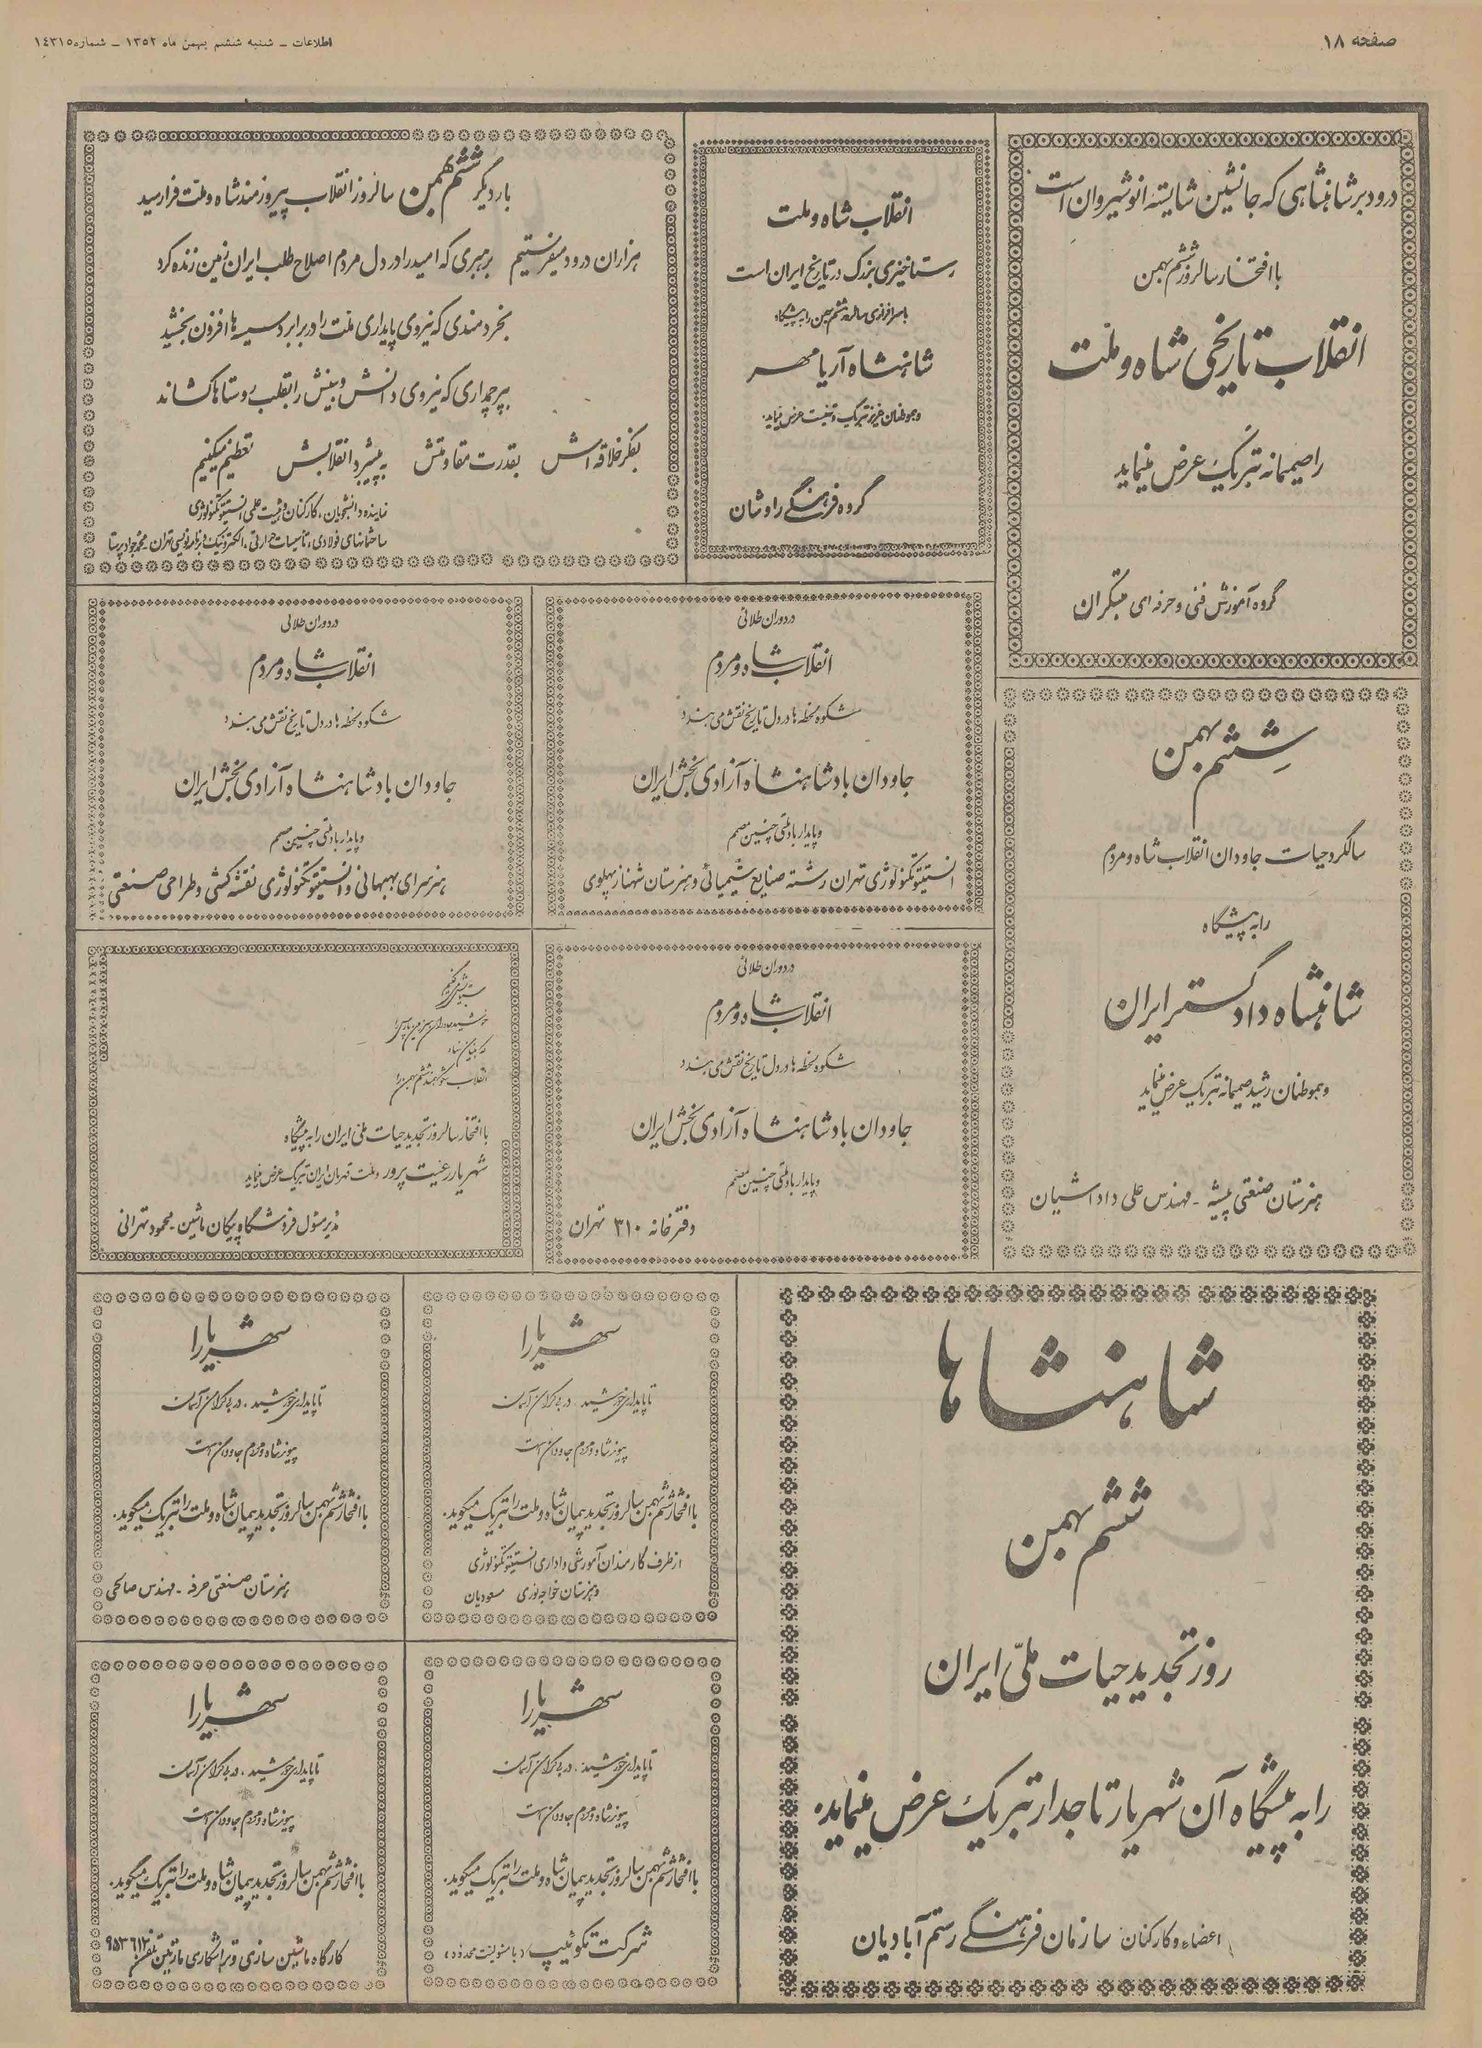 صفحه ۱۸
اطلاعات ـ شنبه ششم بهمن ماه ۱۳۵۲ ـ شماره ۱۴۳۱۵
درود بر شاهنشاهی که جانشین شایسته انوشیروان است
با افتخار سالروز ششم بهمن
انقلاب تاریخی شاه و ملت
را صمیمانه تبریک عرض مینماید
گروه آموزش فنی و حرفه ای مبتکران
انقلاب شاه و ملت
رستاخیزی بزرگ در تاریخ ایران است
با سرافرازی سالروز ششم بهمن را به پیشگاه
شاهنشاه آریامهر
و هموطنان عزیز تبریک و تهنیت عرض مینماید.
گروه فرهنگی راوشان
بار دیگر ششم بهمن سالروز انقلاب پیروزمند شاه و ملت فرا رسید
هزاران درود میفرستیم برهبری که امید را در دل مردم اصلاح طلب ایران زمین زنده کرد
بخردمندی که نیروی پایداری ملت را در برابر دسیسه ها افزون بخشید
بپرچمداری که نیروی دانش و بینش را بقلب روستاها کشاند
بفکر خلاقه اش بقدرت مقاومتش به پیشبرد انقلابش تعظیم میکنیم
نماینده دانشجویان، کارکنان و هیئت علمی انستیتو تکنولوژی
ساختمانهای فولادی، تأسیسات حرارتی، الکترونیک و برنامه نویسی تهران ـ محمد جواد پرستا
در دوران طلائی
انقلاب شاه و مردم
شکوه لحظه ها در دل تاریخ نقش می بندد
جاودان باد شاهنشاه آزادی بخش ایران
و پایدار باد ملتی چنین مصمم
انستیتو تکنولوژی تهران رشته صنایع شیمیائی و هنرستان شهناز پهلوی
در دوران طلائی
انقلاب شاه و مردم
شکوه لحظه ها در دل تاریخ نقش می بندد
جاودان باد شاهنشاه آزادی بخش ایران
و پایدار باد ملتی چنین مصمم
هنرسرای بهبهانی و انستیتو تکنولوژی نقشه کشی و طراحی صنعتی
ششم بهمن
سالگرد حیات جاودان انقلاب شاه و مردم
را به پیشگاه
شاهنشاه دادگستر ایران
و هموطنان رشید صمیمانه تبریک عرض مینماید
هنرستان صنعتی پیشه ـ مهندس علی داداشیان
در دوران طلائی
انقلاب شاه و مردم
شکوه لحظه ها در دل تاریخ نقش می بندد
جاودان باد شاهنشاه آزادی بخش ایران
و پایدار باد ملتی چنین مصمم
دفترخانه ۳۱۰ تهران
ستایش می کنیم
خورشید جاودان سرزمین پارس را
که بنیان نهاد
انقلاب شکوهمند ششم بهمن را
با افتخار سالروز تجدید حیات ملی ایران را به پیشگاه
شهریار رعیت پرور و ملت قهرمان ایران تبریک عرض مینماید
مدیر مسئول فروشگاه پیکان ماشین ـ محمود تهرانی
شاهنشاها
ششم بهمن
روز تجدید حیات ملّی ایران
را به پیشگاه آن شهریار تاجدار تبریک عرض مینماید.
اعضاء و کارکنان سازمان فرهنگی رستم آبادیان
شهریارا
تا پایداری خورشید، در بی کران آسمان
پیوند شاه و مردم جاودان است
با افتخار ششم بهمن سالروز تجدید پیمان شاه و ملت را تبریک میگوید.
از طرف کارمندان آموزشی و اداری انستیتو تکنولوژی
و هنرستان خواجه نوری مسعودیان
شهریارا
تا پایداری خورشید، در بی کران آسمان
پیوند شاه و مردم جاودان است
با افتخار ششم بهمن سالروز تجدید پیمان شاه و ملت را تبریک میگوید.
هنرستان صنعتی حرفه ـ مهندس صالحی
شهریارا
تا پایداری خورشید، در بی کران آسمان
پیوند شاه و مردم جاودان است
با افتخار ششم بهمن سالروز تجدید پیمان شاه و ملت را تبریک میگوید.
شرکت تکوئیپ (با مسئولیت محدود)
شهریارا
تا پایداری خورشید، در بی کران آسمان
پیوند شاه و مردم جاودان است
با افتخار ششم بهمن سالروز تجدید پیمان شاه و ملت را تبریک میگوید.
کارگاه ماشین سازی و تراشکاری مارتین تلفن ۹۵۳۶۱۲